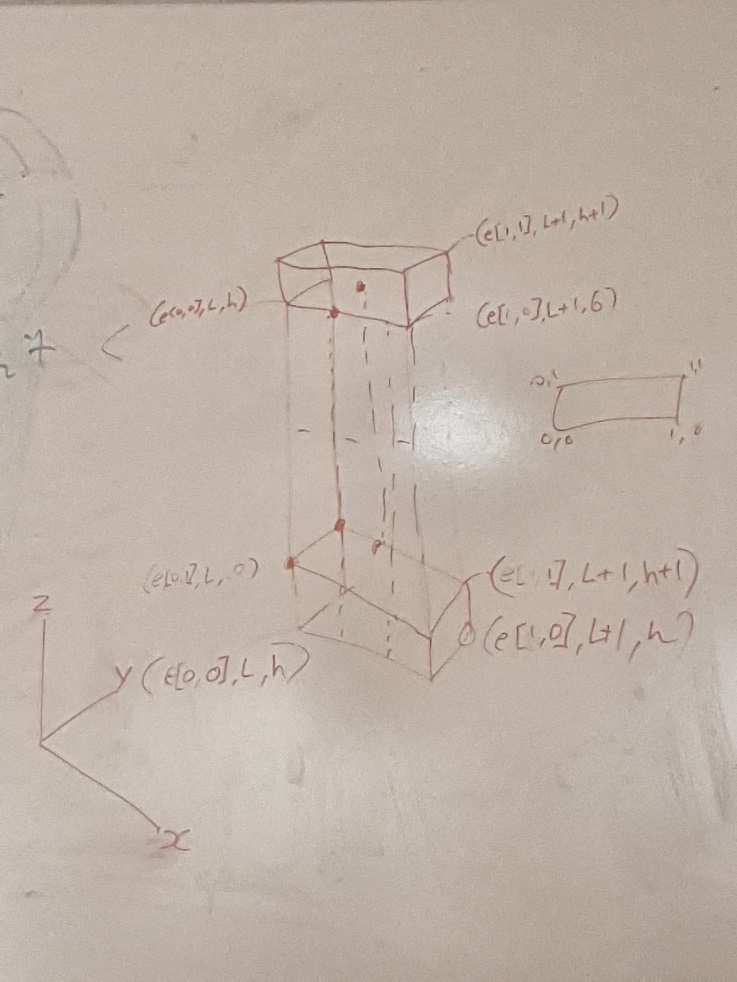 (e[1,1], L+1, h+1)
(e[0,0], L, h)
(e[1,0], L+1, 6)
7 <
0,1
1,1
0,0
1,0
(e[0,1], L, 0)
(e[ 1], L+1, h+1)
(e[1,0], L+1, h)
Z
Y (e[0,0], L, h)
x